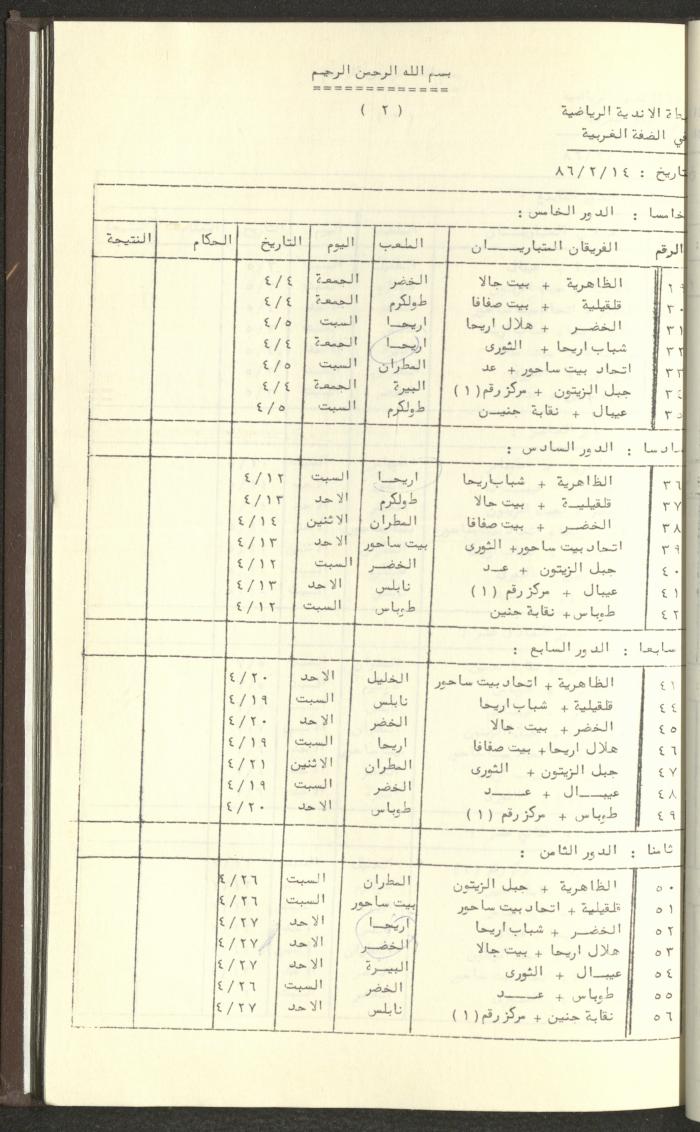 بسم الله الرحمن الرحيم
( ٢ )
الاندية الرياضية
في الضفة الغربية
تاريخ : ٨٦/٢/١٤
خامسا : الدور الخامس :
الرقم الفريقان المتباريــــان الملعب اليوم التاريخ الحكام النتيجة
٢٩ الظاهرية + بيت جالا الخضر الجمعة ٤/٤
٣٠ قلقيلية + بيت صفافا طولكرم الجمعة ٤/٤
٣١ الخضــر + هلال اريحا اريحــا السبت ٤/٥
٣٢ شباب اريحا + الثورى اريحــا الجمعة ٤/٤
٣٣ اتحاد بيت ساحور + عد المطران السبت ٤/٥
٣٤ جبل الزيتون + مركز رقم (١) البيرة الجمعة ٤/٤
٣٥ عيبال + نقابة جنيــن طولكرم السبت ٤/٥
سادسا : الدور السادس :
٣٦ الظاهرية + شباب اريحا اريحــا السبت ٤/١٢
٣٧ قلقيليــة + بيت جالا طولكرم الاحد ٤/١٣
٣٨ الخضــر + بيت صفافا المطران الاثنين ٤/١٤
٣٩ اتحاد بيت ساحور + الثورى بيت ساحور الاحد ٤/١٣
٤٠ جبل الزيتون + عــد الخضــر السبت ٤/١٢
٤١ عيبال + مركز رقم (١) نابلس الاحد ٤/١٣
٤٢ طوباس + نقابة جنين طوباس السبت ٤/١٢
سابعا : الدور السابع :
٤٣ الظاهرية + اتحاد بيت ساحور الخليل الاحد ٤/٢٠
٤٤ قلقيلية + شباب اريحا نابلس السبت ٤/١٩
٤٥ الخضــر + بيت جالا الخضر الاحد ٤/٢٠
٤٦ هلال اريحا + بيت صفافا اريحا السبت ٤/١٩
٤٧ جبل الزيتون + الثورى المطران الاثنين ٤/٢١
٤٨ عيبــــال + عــــــد الخضر السبت ٤/١٩
٤٩ طوباس + مركز رقم (١) طوباس الاحد ٤/٢٠
ثامنا : الدور الثامن :
٥٠ الظاهرية + جبل الزيتون المطران السبت ٤/٢٦
٥١ قلقيلية + اتحاد بيت ساحور بيت ساحور السبت ٤/٢٦
٥٢ الخضــر + شباب اريحا اريحــا الاحد ٤/٢٧
٥٣ هلال اريحا + بيت جالا الخضــر الاحد ٤/٢٧
٥٤ عيبــــال + الثورى البيــرة الاحد ٤/٢٧
٥٥ طوباس + عــــــد الخضر السبت ٤/٢٦
٥٦ نقابة جنين + مركز رقم (١) نابلس الاحد ٤/٢٧